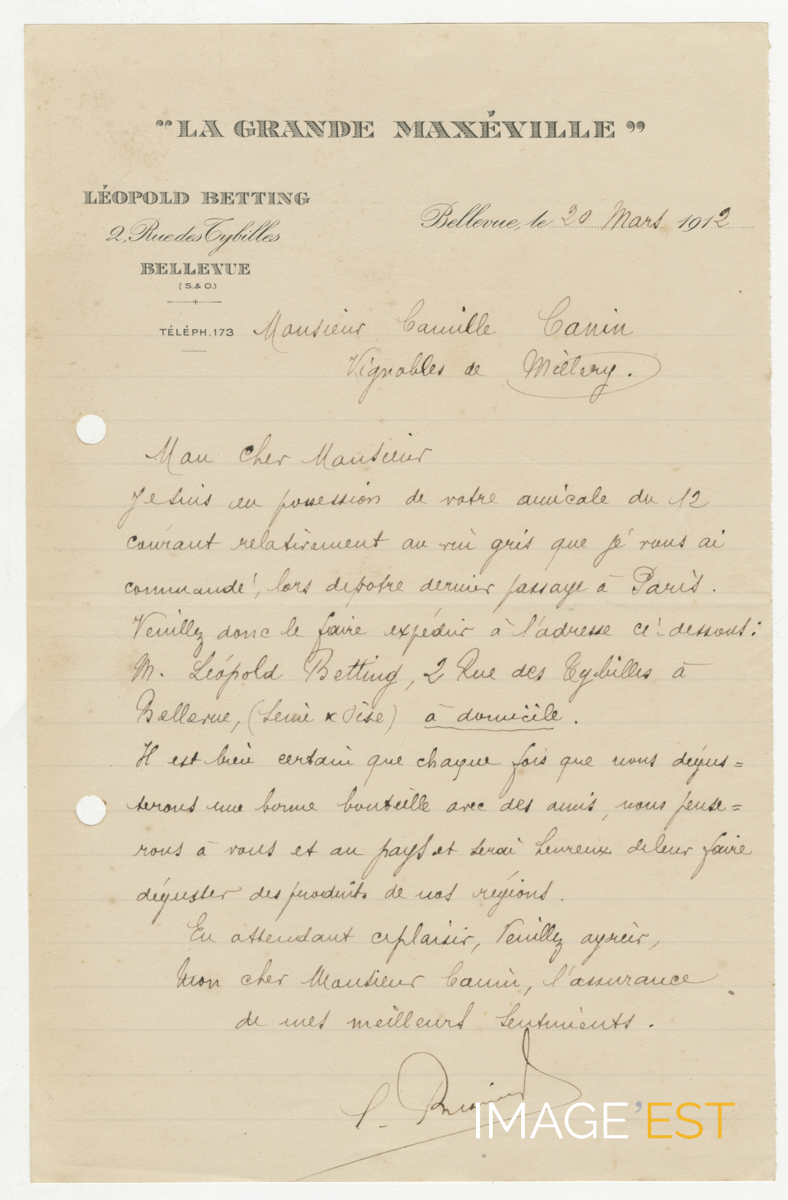 "LA GRANDE MAXÉVILLE"
LÉOPOLD BETTING
2, Rue des Tybilles
BELLEVUE
(S.& O.)
TÉLÉPH.173
Bellevue, le 20 Mars 1912
Monsieur Camille Canin
Vignobles de Millery.
Mon cher Monsieur
Je suis en possession de votre amicale du 12
courant relativement au vin gris que je vous ai
commandé, lors de votre dernier passage à Paris.
Veuillez donc le faire expédier à l'adresse ci-dessous:
M. Léopold Betting, 2 Rue des Tybilles à
Bellevue, (Seine & Oise) à domicile.
Il est bien certain que chaque fois que nous dégus=
terons une bonne bouteille avec des amis, nous pense=
rons à vous et au pays et serai heureux de leur faire
déguster des produits de nos régions.
En attendant ce plaisir, Veuillez agréer,
Mon cher Monsieur Canin, l'assurance
de mes meilleurs sentiments.
IMAGE'EST